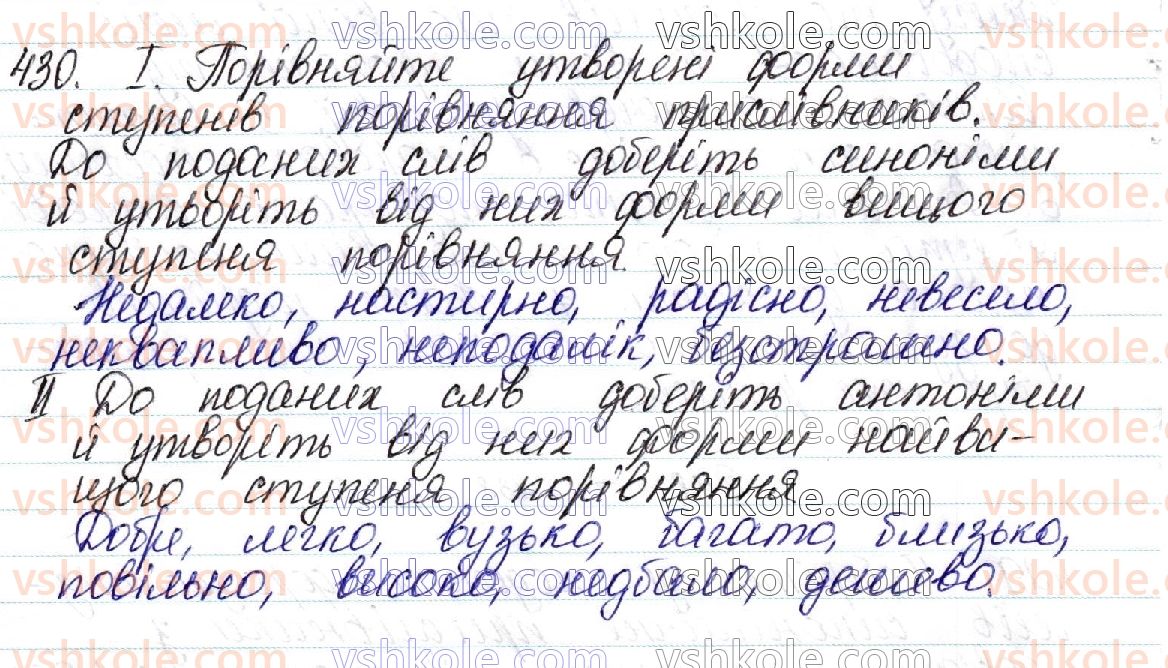 430. I. Порівняйте утворені форми
ступенів порівняння прислівників.
До поданих слів доберіть синоніми
й утворіть від них форми вищого
ступеня порівняння.
Недалеко, настирно, радісно, невесело,
неквапливо, неподалік, безстрашно.
II До поданих слів доберіть антоніми
й утворіть від них форми найви-
щого ступеня порівняння
Добре, легко, вузько, багато, близько,
повільно, високо, недбало, дешево.
vshkole.com